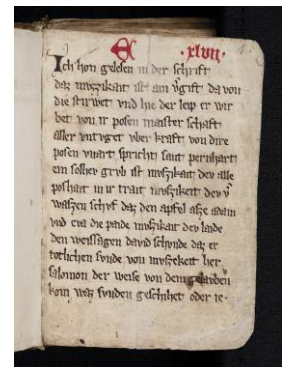 E · xlvii ·
Ich hon gelesen in der schrift
daz muͤzzikait ist ain v͛gift da von
die stirbet vnd hie der leip er wir
bet von ir posen maister schaft
aller vntuget vber kraft von dire
posen vnart spricht sant pernhart
ein solher grvb ist mvͤzikait dev alle
poshait in ir trait mvͤzikeit dev v͛
waͤssen schvf daz den apfel azze adam
vnd eva die paide mvͤzikait dev laide
den weissagen david schvnde daz er
totlichen svnde von mvͤzekeit her
salomon der weise von dem gelavben
kom waz svnden geschihet oder ie-